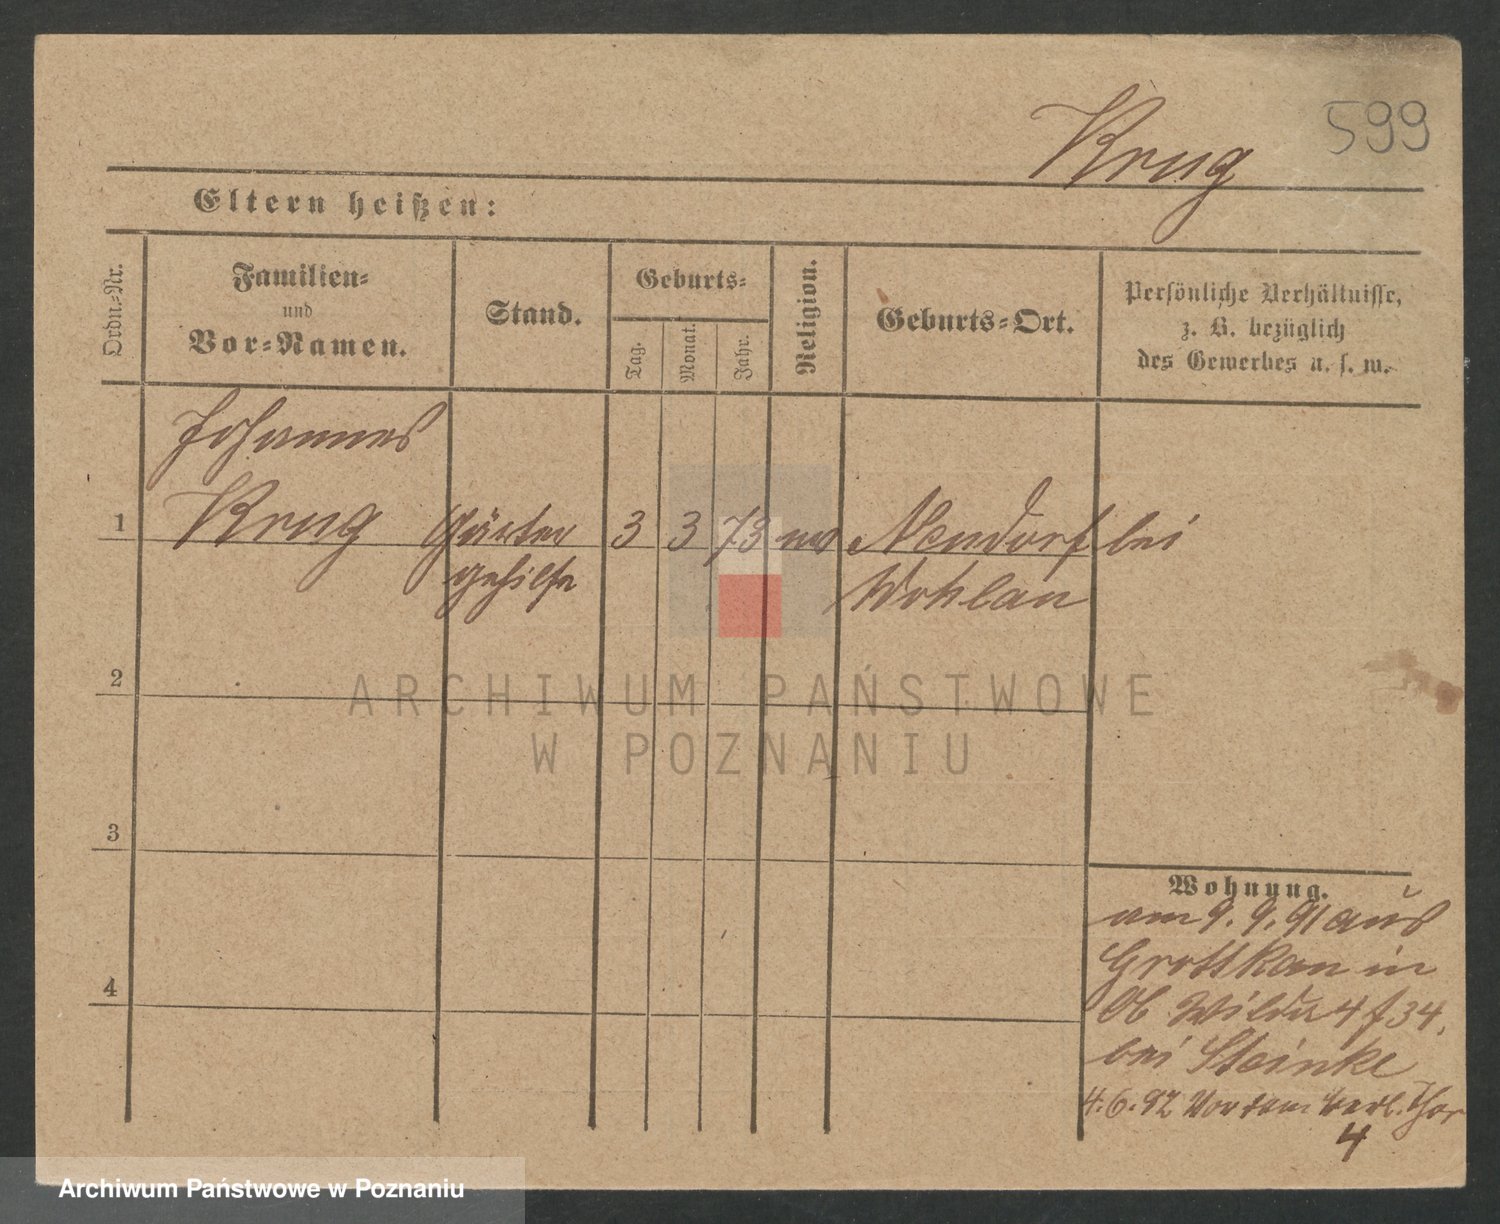 599
Krug
Eltern heißen:
Ordn.-Nr.
Familien-
und
Vor-Namen.
Stand.
Geburts-
Tag.
Monat.
Jahr.
Religion.
Geburts-Ort.
Persönliche Verhältnisse,
z. B. bezüglich
des Gewerbes u. s. w.
Johannes
1 Krug Gärtner 3 3 73 Neudorf bei
gehilfe Wohlau
2
ARCHIWUM PAŃSTWOWE
W POZNANIU
3
Wohnung.
am 9. 9. 91 aus
Grottkau in
Ob Wilda 4
bei Steinke
4.6.92 Vor dem Berl. Thor
4
4
Archiwum Państwowe w Poznaniu